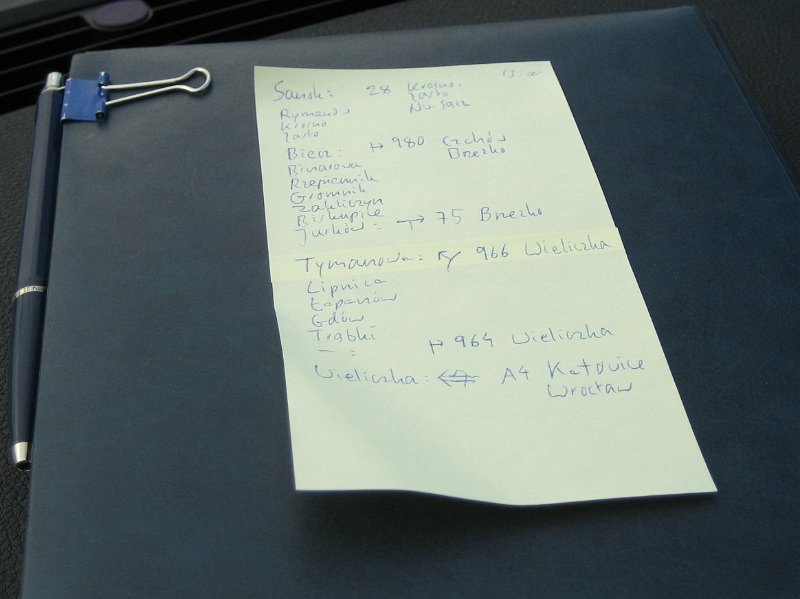 Sanok: 28 Krosno,
Rymanów Jasło
Krosno Nw. Sącz
Jasło
Biecz: 980 Czchów
Binarowa Brzesko
Rzepiennik
Gromnik
Zakliczyn
Biskupice
Jurków: 75 Brzesko
Tymanowa: 966 Wieliczka
Lipnica
Łapanów
Gdów
Trąbki
— : 964 Wieliczka
Wieliczka: A4 Katowice
Wrocław